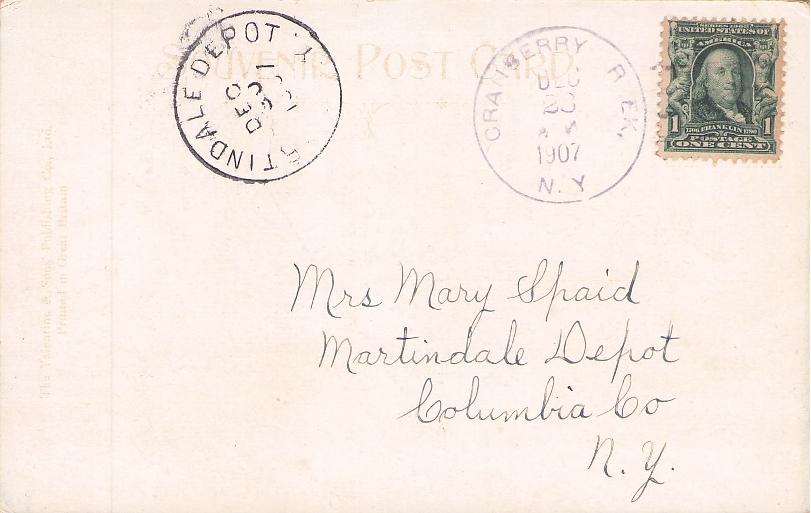 SOUVENIR POST CARD
MARTINDALE DEPOT
DEC
CRANBERRY
DEC
23
1907
N.Y
SERIES 1902
UNITED STATES OF
AMERICA
1706 FRANKLIN 1790
1 POSTAGE 1
ONE CENT
Mrs Mary Spaid
Martindale Depot
Columbia Co
N. Y.
The Valentine & Sons' Publishing Co., Ltd.
Printed in Great Britain